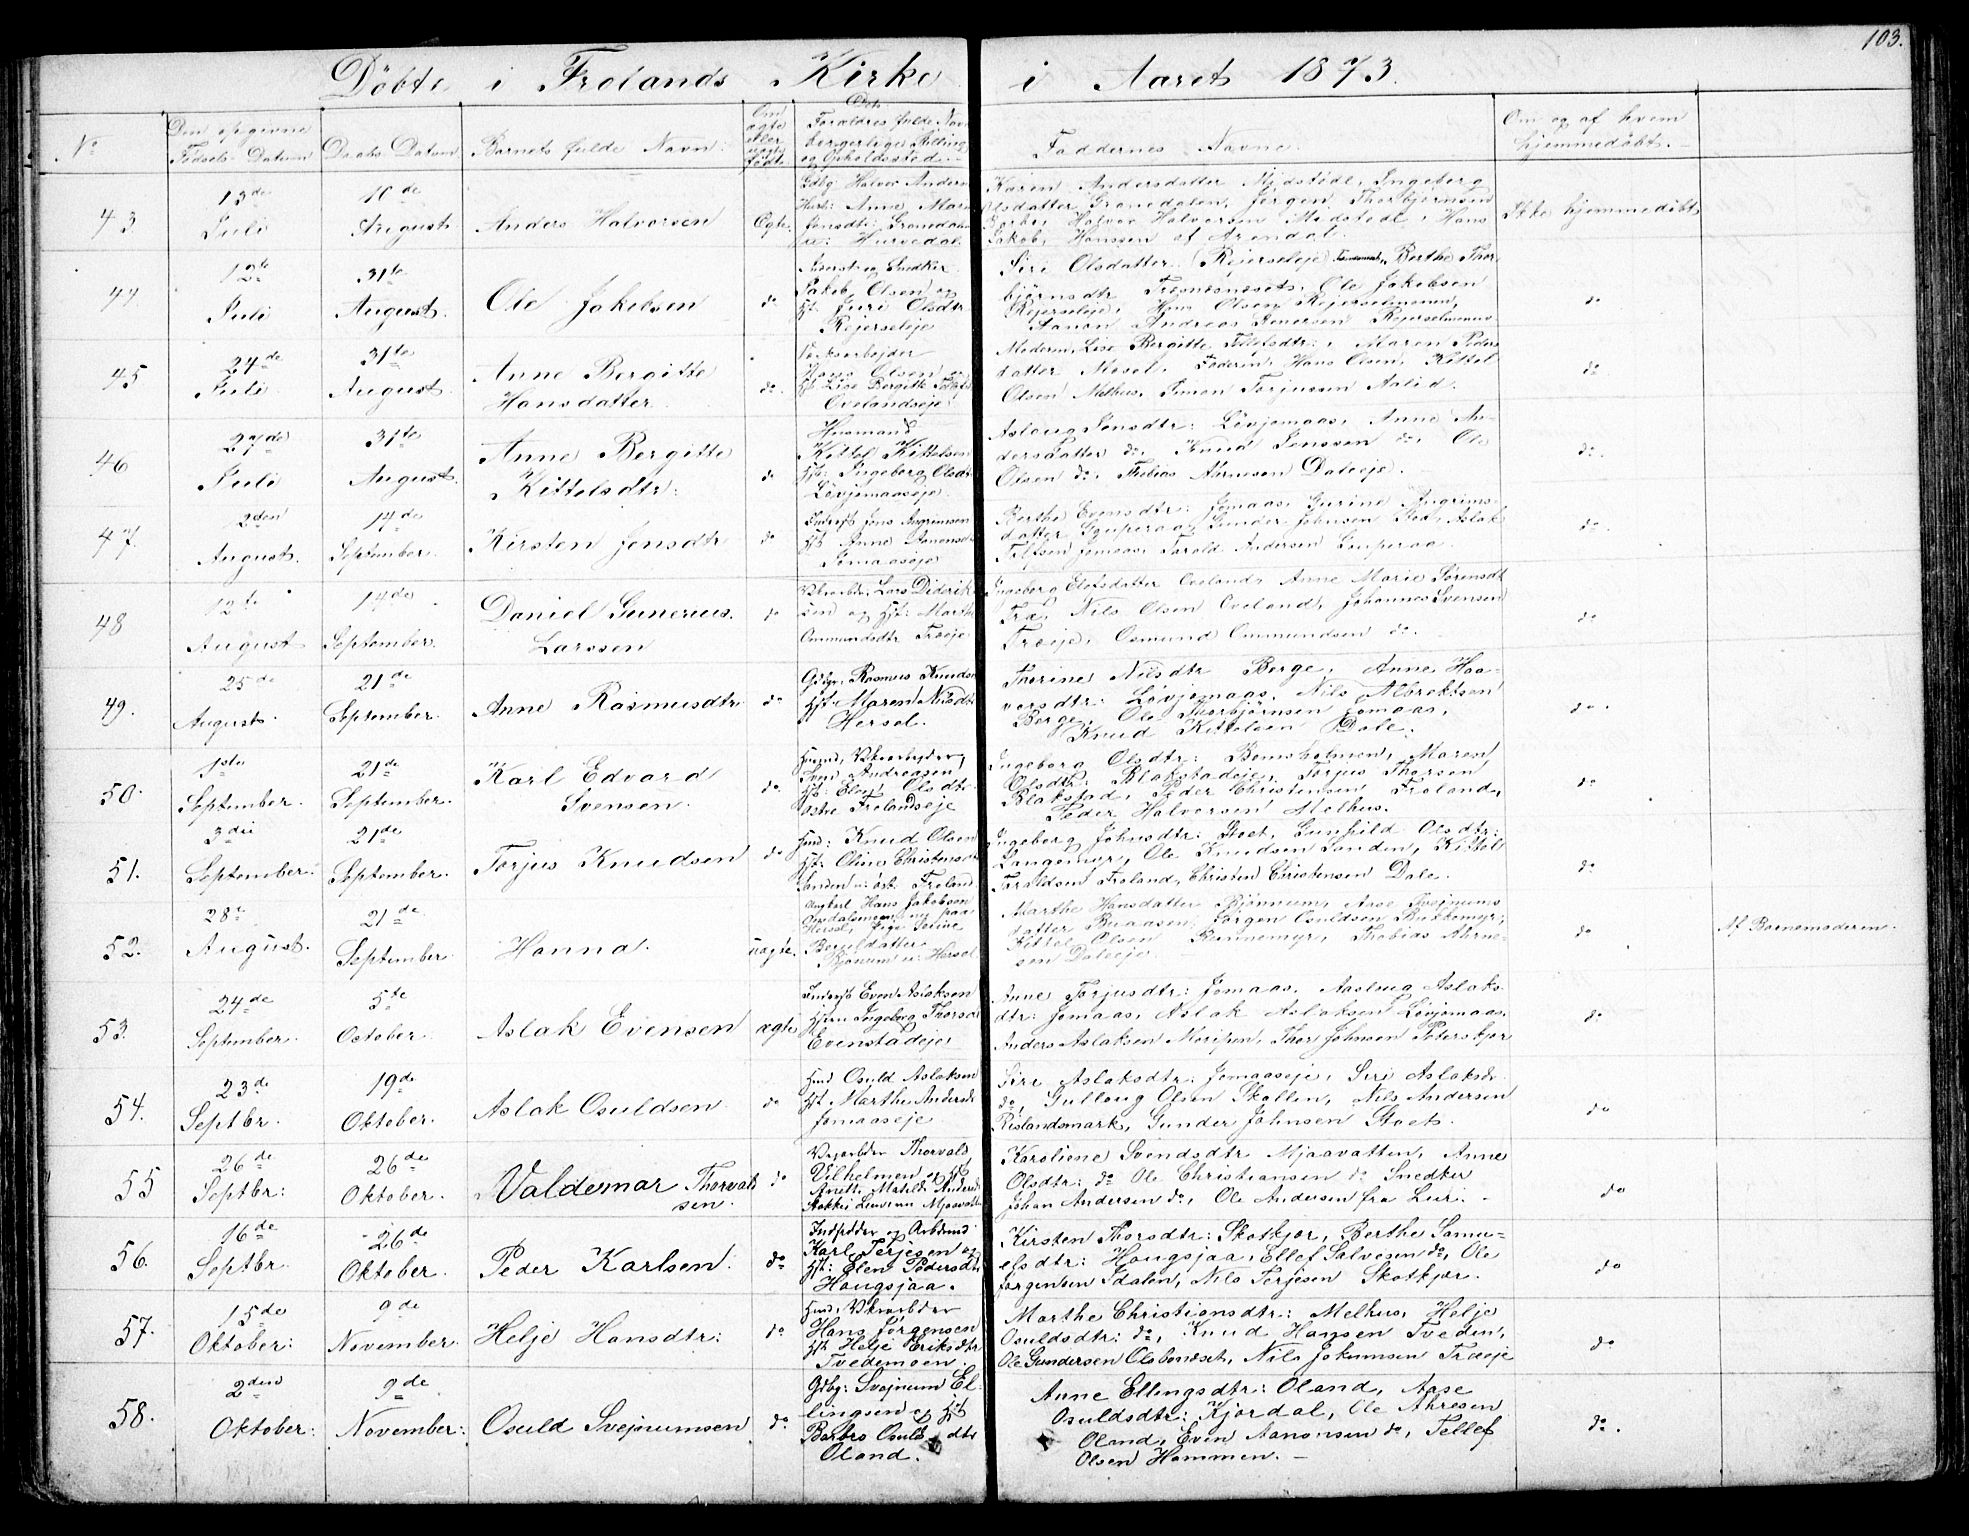 103.
Döbte i Frolands Kirke i Aaret 1873.
No
Den opgivne Fødsels-Datum
Daabs Datum
Barnets fulde Navn:
Om ægte eller uægte født.
Forældres fulde Navn borgerlige Stilling og Opholdssted.
Faddernes Navne.
Om og af hvem hjemmedøbt.
43
13de Juli
10de August
Anders Halvorsen
Ægte.
Gdbg Halvor Anders
Karen Andersdatter Mjdstødl, Ingeberg
Olsdatter Granedalen, Jørgen Thorbjørnsen
Halvor Halvorsen Hans
Jakob Hanssen af Arendal.
Ikke hjemmedøbt
44
12te Juli
31te August.
Ole Jakobsen
do
Jakob Olsen og
Ht. Juri Olsdtr
Rejerseleje
Siri Olsdatter Rejerseleje, Berthe Thor
björnsdtr Ole Jakobsen
Rejerseleje, Hans Olsen Rejerselmoen,
Aanon Andreas
do
45
24de Juli
31te August.
Anne Bergitte
Hansdatter
do.
Hans Olsen og
Hst Lise Bergitte
Ovelandseje
Moderen, Lise Bergitte Maren Peders
datter Mosel, Faderen, Hans Olsen, Kittel
Olsen Melhus, Simon Torjussen Aalid.
do
46
27de Juli
31te August.
Anne Bergitte
Kittelsdtr:
do
Husmand
Kittel Kittelsen
Hst: Ingeborg Olsdtr
Lövjomaaseje
Aslaug Jonsdtr: Lövjomaas, Anne An-
dersdatter do, Knud Jensson do, Ole
Olsen do, Thobias Ahrnesen Daleeje.
do.
47.
2den August.
14de September.
Kirsten Jensdtr
do
Inderst Jens Angrimsen
Hst Anne Aanonsd
Jomaaseje
Berthe Evensdtr: Jomaas, Gurine Angrims-
datter Gunder Johnsen Aslak
Jomaas, Tarald Andersen
do
48
12te August
14de September.
Daniel Gunerius.
Larssen
do
Lars Didrik
sen og Hst: Marthe
Ommundsdtr Træeje
Ingeborg Elefsdatter Oveland, Anne Marie Sörensdt
Træ, Nils Olsen Oveland, Johannes Svensen
Træeje, Osmund Ommundsen do.
do
49.
25de August.
21de September.
Anne Rasmusdtr
do
Gdbgr. Rasmus Knuds
Hst Maren Nilsdtr
Hersel.
Thorine Nilsdtr Berge, Anne Haa-
vorsdtr: Lövjomaas. Nils Albrektsen
Berge, Ole Thorbjörnsen Jomaas,
Knud Kittelsen Dale.
do.
50.
1ste September.
21de September.
Karl Edvard
Svensen.
do.
Husmd, Vrkarbejder,
Sven Andreasen
Hst: Elen Olsdtr
östre Frolandseje
Ingeborg Olsdtr: Bomsholmen, Maren
Olsdtr: Blakstadeje, Torjus Thorsen
Blakstad, Peder Christensen Froland,
Peder Halvorsen Melhus.
do
51.
3die September.
21de September.
Torjus Knudsen
do
Husmd: Knud Olsen
Hst: Oline Christensdtr
Sanden u: öst. Froland
Ingeborg Johnsdtr: Stoet, Gunhild Olsdtr:
Langemyr, Ole Knudsen Sanden, Kittel
Taraldsen Froland, Christen Christensen Dale.
do
52.
28de August.
21de September
Hanna.
uægte.
Ungkarl Hans Jakobsen
Hersel, Pige Serine
Bergeldatter
Bjönum u: Hersel
Marthe Hansdatter Bjönnum, Aase Svejnums
datter Braasen, Jörgen Osuldsen Bukkemyr,
Kittel Olsen Rennemyr, Thobias Ahrne-
sen Daleeje.
do
Af Barnemoderen.
53.
24de September.
5te October.
Aslak Evensen
ægte
Inderst Even Aslaksen
Hstru Ingeborg Thorsd
Evenstadeje
Anne Torjusdtr: Jomaas, Aaslaug Aslaks-
dtr: Jomaas, Aslak Aslaksen Lövjomaas,
Anders Aslaksen Moripen, Thor Johnsen Peterskjær
do
54.
23de Septbr.
19de Oktober.
Aslak Osuldsen
do
Husmd Osuld Aslaksen
Hst Marthe Andersd
Jomaaseje
Siri Aslaksdtr: Jomaaseje, Siri Aslaksdr
do, Gulloug Olsen Skallen, Nils Andersen
Rislandsmark, Gunder Johnsen Stoet.
do
55
26de Septbr:
26de Oktober.
Valdemar Thorvald
sen.
do
Thorvald
Vilhelmsen og Hst
Anette Matilde Andersd
Mjaavatten
Karoliene Svendsdtr Mjaavatten, Anne
Olsdtr: do Ole Christiansen do Snedker
Johan Andersen do, Ole Andersen fra Lier.
do
56.
16de Septbr.
26de Oktober.
Peder Karlsen.
do
Indredder og Arbdmd
Karl Terjesen og
Hst: Elen Pedersdtr
Haugsjaa.
Kirsten Thorsdtr: Skotkjær, Berthe Samu-
elsdtr: Haugsjaa, Ellef Salvesen do, Ole
Jørgensen Idalen, Nils Terjesen Skotkjær.
do
57.
15de Oktober:
9de November.
Helje Hansdtr:
do
Husmd, Vrkarbdr
Hans Jørgensen
Hst Helje Eriksdtr
Tvedemoen.
Marthe Christiansdtr: Melhus, Helje
Osuldsdtr: do, Knud Hansen Tveden,
Ole Gundersen Olsbonset, Nils Jokumsen Træeje
do
58.
2den Oktober:
9de November:
Osuld Svejnumsen
do
Gdbg: Svejnum El-
lingsen og Hst
Barbro Osulds dtr
Oland.
Anne Ellingsdtr: Oland, Aase
Osuldsdtr: Kjördal, Ole Ahresen
Oland, Even Aanonsen do, Tellef
Olsen Hammen.
do.